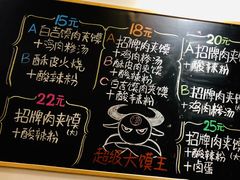 15元
A 白吉馍肉夹馍
+鸡肉粉汤
B 酥皮火烧
+酸辣粉
18元
A 招牌肉夹馍
+鸡肉粉汤
B 酥皮肉夹馍
+酸辣粉
C 白吉馍肉夹馍
+酸辣粉
20元
招牌肉夹馍
+酸辣粉
22元
招牌肉夹馍(大)
+酸辣粉
招牌肉夹馍(大)
+鸡肉粉汤
25元
招牌肉夹馍(大)
+酸辣粉
+卤蛋
超级大馍王